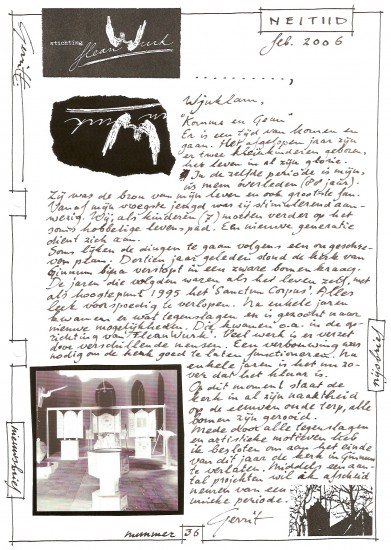 NEITIID
feb. 2006
stichting
fleanwurk
Gerrit
Wjuklam,
"Komme en Gean"
Er is een tijd van komen en
gaan. Het afgelopen jaar zijn
er twee kleinkinderen geboren,
het leven in al zijn glorie.
In de zelfde periode is mijn
mem overleden (80 jaar).
Zij was de bron van mijn leven en ook grootste fan.
Vanaf mijn vroegste jeugd was zij stimulerend aan-
wezig. Wij, als kinderen (7) moeten verder op het
soms hobbelige levenspad. Een nieuwe generatie
dient zich aan.
Soms lijken de dingen te gaan volgens een ongeschre-
ven plan. Dertien jaar geleden stond de kerk van
Ginnum bijna verstopt in een zware bomenkraag.
De jaren die volgden waren als het leven zelf, met
als hoogtepunt 1995 het Sanctum Corpus! Alles
leek voorspoedig te verlopen. Na enkele jaren
kwamen er wat tegenslagen en is gezocht naar
nieuwe mogelijkheden. Die kwamen o.a. in de op-
richting van Fleanwurk. Veel werk is er verzet
door verschillende mensen. Een verbouwing was
nodig om de kerk goed te laten functioneren. Na
enkele jaren is het nu zo-
ver dat het klaar is.
Op dit moment staat de
kerk in al zijn naaktheid
op de eeuwen oude terp, alle
bomen zijn gerooid.
Mede door alle tegenslagen
en artistieke motieven heb
ik besloten om aan het einde
van dit jaar de kerk in Ginnum
te verlaten. Middels een aan-
tal projekten wil ik afscheid
nemen van een
unieke periode.
Gerrit
nijsbrief
nieuwsbrief
nummer 36